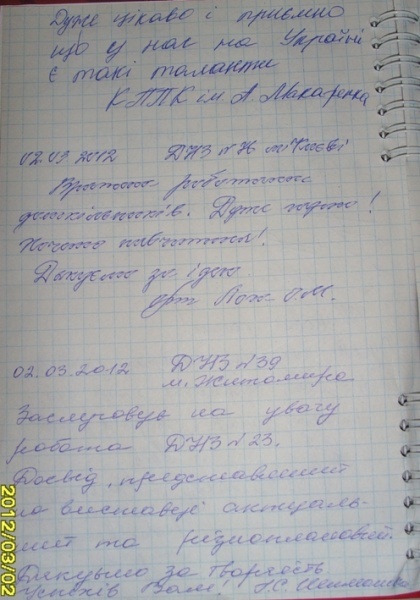 Дуже цікаво і приємно
що у нас на Україні
є такі таланти
КППК ім. А. Макаренка
02.03.2012 ДНЗ №76 м.
Вражена роботами
дошкільників. Дуже гарно!
Хочемо навчитися!
Дякуємо за ідею
О.М.
02.03.2012 ДНЗ №39
м. Житомира
Заслуговує на увагу
робота ДНЗ №23.
Досвід, представлений
на виставці актуаль-
ний та різноплановий.
Дякуємо за творчість
Успіхів Вам!
2012/03/02